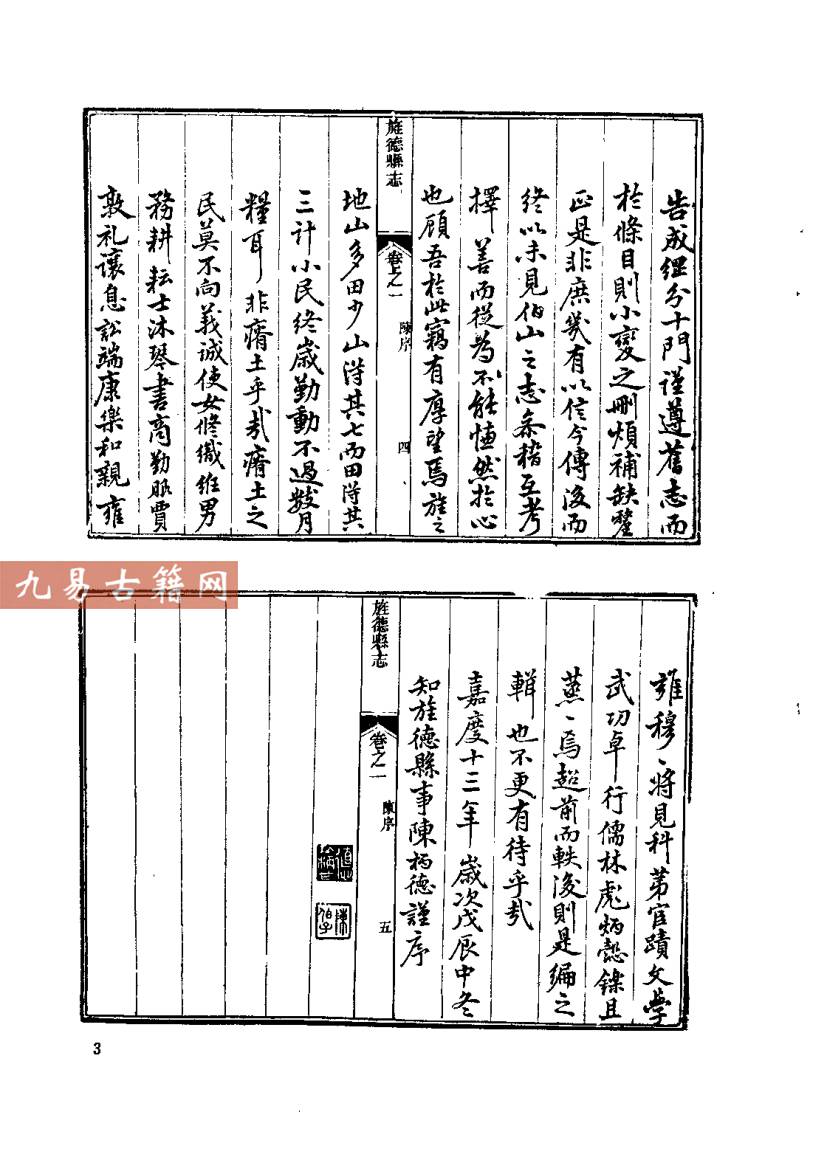 告成經分十門謹遵舊志而
於條目則小變之刪煩補缺釐
正是非庶幾有以信今傳後而
終以未見伯山之志參稽互考
擇善而從為不能愜然於心
也顧吾於此竊有厚望焉旌之
旌德縣志
卷之一
陳序
四
地山多田少山得其七而田得其
三計小民終歲勤動不過數月
糧耳非瘠土乎哉瘠土之
民莫不向義誠使女修織絍男
務耕耘士沐琴書商勤服賈
敦礼讓息訟端康樂和親雍
九易古籍网
雍穆、將見科第官蹟文學
武功卓行儒林彪炳懿鑠且
蒸、焉超前而軼後則是編之
輯也不更有待乎哉
嘉慶十三年歲次戊辰中冬
知旌德縣事陳柄德謹序
旌德縣志
卷之一
陳序
五
3